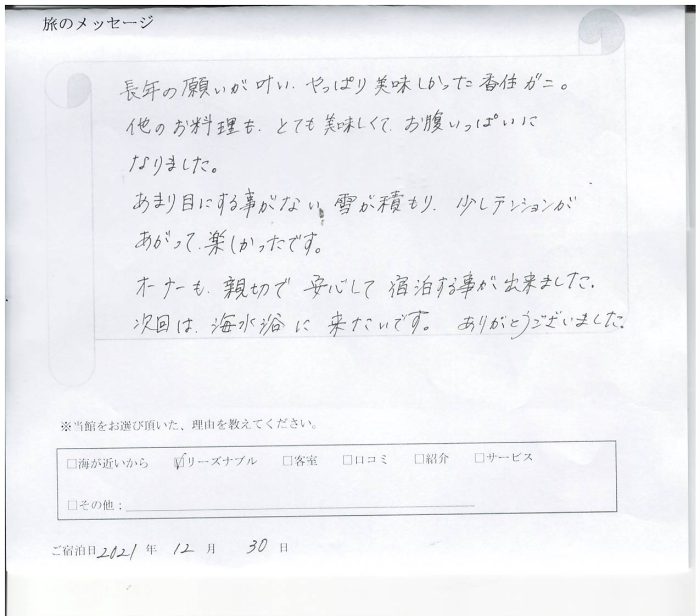 旅のメッセージ
長年の願いが叶い、やっぱり美味しかった香住ガニ。
他のお料理も、とても美味しくて、お腹いっぱいに
なりました。
あまり目にする事がない、雪が積もり、少しテンションが
あがって、楽しかったです。
オーナーも、親切で 安心して 宿泊する事が、出来ました。
次回は、海水浴に 来たいです。 ありがとうございました。
※当館をお選び頂いた、理由を教えてください。
□海が近いから ☑リーズナブル □客室 □口コミ □紹介 □サービス
□その他：
ご宿泊日 2021 年 12 月 30 日